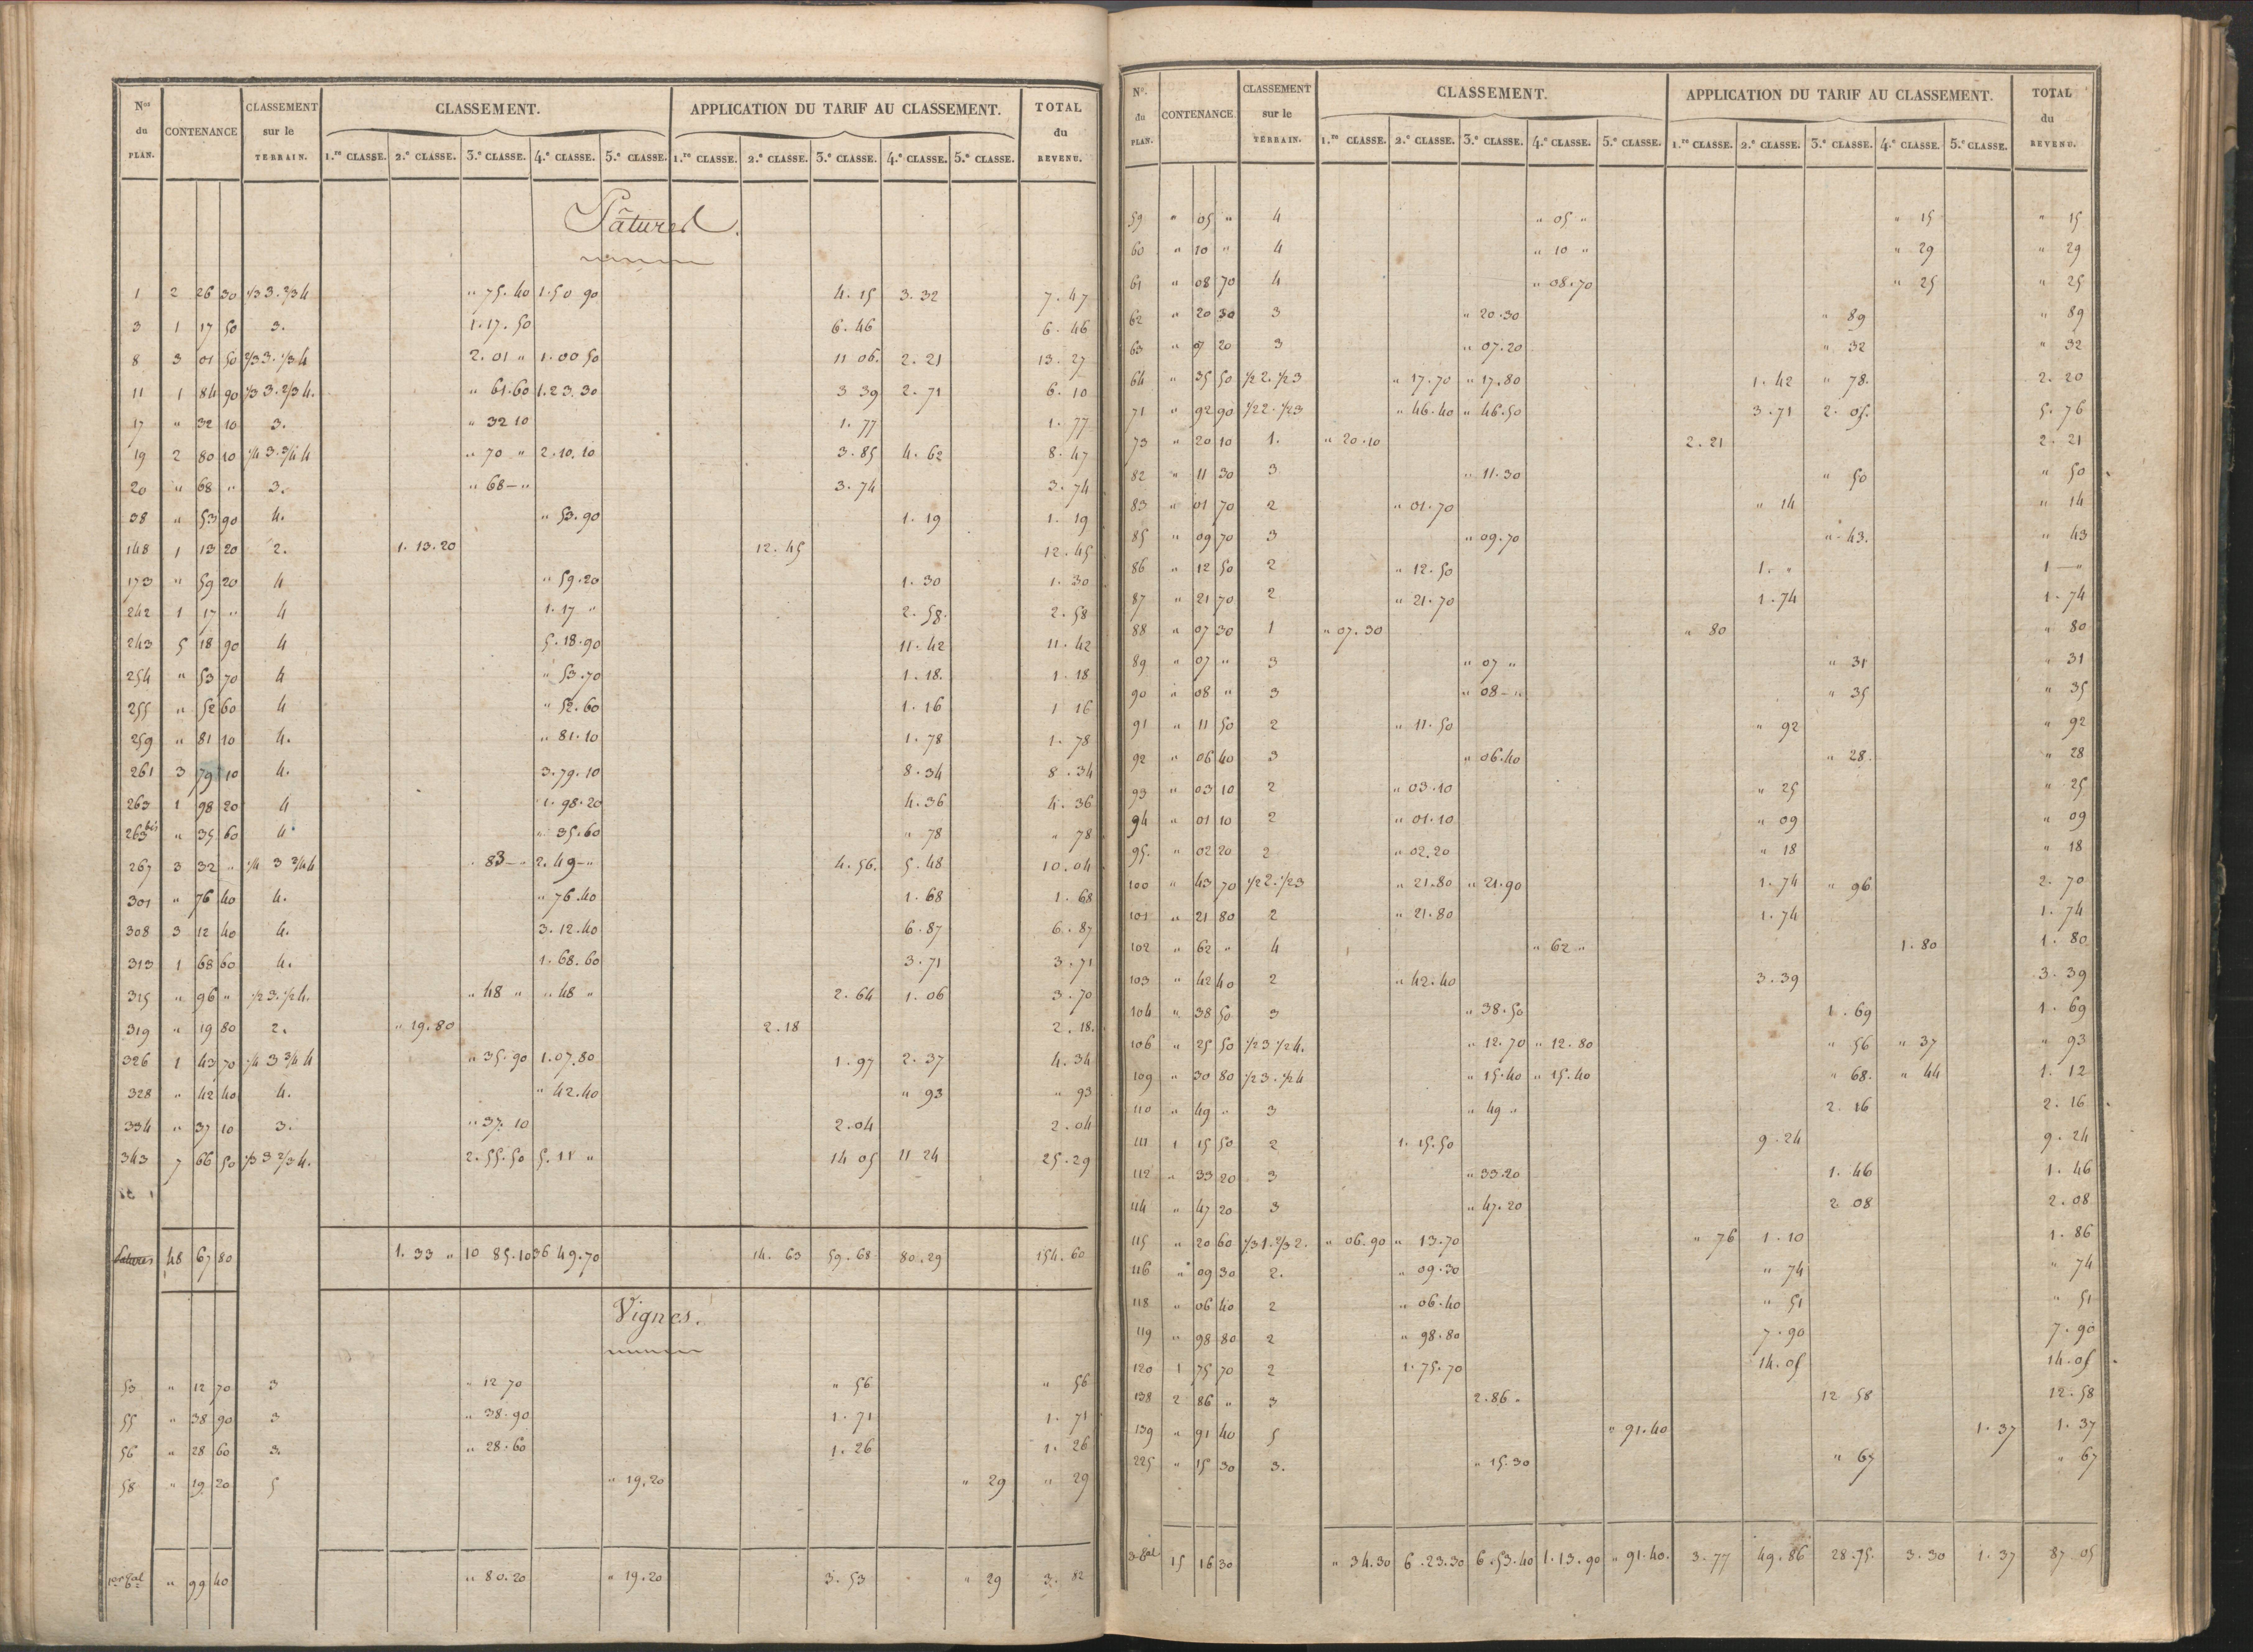 Nos du PLAN. CONTENANCE CLASSEMENT sur le TERRAIN. CLASSEMENT. APPLICATION DU TARIF AU CLASSEMENT. TOTAL du REVENU.
1.re CLASSE. 2.e CLASSE. 3.e CLASSE. 4.e CLASSE. 5.e CLASSE. 1.re CLASSE. 2.e CLASSE. 3.e CLASSE. 4.e CLASSE. 5.e CLASSE.
Pâtures.
1 2 26 30 1/3 3. 2/3 4 " 75. 40 1. 50 90 4. 15 3. 32 7. 47
3 1 17 50 3. 1. 17. 50 6. 46 6. 46
8 3 01 50 2/3 3. 1/3 4 2. 01 " 1. 00 50 11 06. 2. 21 13. 27
11 1 84 90 1/3 3. 2/3 4. " 61. 60 1. 23. 30 3 39 2. 71 6. 10
17 " 32 10 3. " 32 10 1. 77 1. 77
19 2 80 10 1/4 3. 3/4 4 " 70 " 2. 10. 10 3. 85 4. 62 8. 47
20 " 68 " 3. " 68 — " 3. 74 3. 74
38 " 53 90 4. " 53. 90 1. 19 1. 19
148 1 13 20 2. 1. 13. 20 12. 45 12. 45
173 " 59 20 4 " 59. 20 1. 30 1. 30
242 1 17 " 4 1. 17 " 2. 58. 2. 58
243 5 18 90 4 5. 18. 90 11. 42 11. 42
254 " 53 70 4 " 53. 70 1. 18. 1. 18
255 " 52 60 4 " 52. 60 1. 16 1 16
259 " 81 10 4. " 81. 10 1. 78 1. 78
261 3 79 10 4. 3. 79. 10 8. 34 8. 34
263 1 98 20 4 1. 98. 20 4. 36 4. 36
263 bis " 35 60 4. " 35. 60 " 78 " 78
267 3 32 " 1/4 3 3/4 4 . 83 — " 2. 49 — " 4. 56. 5. 48 10. 04
301 " 76 40 4. " 76. 40 1. 68 1. 68
308 3 12 40 4. 3. 12. 40 6. 87 6. 87
313 1 68 60 4. 1. 68. 60 3. 71 3. 71
315 " 96 " 1/2 3. 1/2 4. " 48 " " 48 " 2. 64 1. 06 3. 70
319 " 19 80 2. " 19. 80 2. 18 2. 18.
326 1 43 70 1/4 3 3/4 4 " 35. 90 1. 07. 80 1. 97 2. 37 4. 34
328 " 42 40 4. " 42. 40 " 93 " 93
334 " 37 10 3. " 37. 10 2. 04 2. 04
343 7 66 50 1/3 3 2/3 4. 2. 55. 50 5. 11 " 14 05 11 24 25. 29
Pâtures 48 67 80 1. 33 " 10 85. 10 36 49. 70 14. 63 59. 68 80. 29 154. 60
Vignes.
53 " 12 70 3 " 12 70 " 56 " 56
55 " 38 90 3 " 38. 90 1. 71 1. 71
56 " 28 60 3. " 28. 60 1. 26 1. 26
58 " 19 20 5 " 19. 20 " 29 " 29
" 99 40 " 80. 20 " 19. 20 3. 53 " 29 3. 82
No. du PLAN. CONTENANCE CLASSEMENT sur le TERRAIN. CLASSEMENT. APPLICATION DU TARIF AU CLASSEMENT. TOTAL du REVENU.
1.re CLASSE. 2.e CLASSE. 3.e CLASSE. 4.e CLASSE. 5.e CLASSE. 1.re CLASSE. 2.e CLASSE. 3.e CLASSE. 4.e CLASSE. 5.e CLASSE.
59 " 05 " 4 " 05 " " 15 " 15
60 " 10 " 4 " 10 " " 29 " 29
61 " 08 70 4 " 08. 70 " 25 " 25
62 " 20 30 3 " 20. 30 " 89 " 89
63 " 07 20 3 " 07. 20 " 32 " 32
64 " 35 50 1/2 2. 1/2 3 " 17. 70 " 17. 80 1. 42 " 78. 2. 20
71 " 92 90 1/2 2. 1/2 3 " 46. 40 " 46. 50 3. 71 2. 05. 5. 76
73 " 20 10 1. " 20. 10 2. 21 2. 21
82 " 11 30 3 " 11. 30 " 50 " 50
83 " 01 70 2 " 01. 70 " 14 " 14
85 " 09 70 3 " 09. 70 " 43. " 43
86 " 12 50 2 " 12. 50 1. " 1 — "
87 " 21 70 2 " 21. 70 1. 74 1. 74
88 " 07 30 1 " 07. 30 " 80 " 80
89 " 07 " 3 " 07 " " 31 " 31
90 " 08 " 3 " 08 — " " 35 " 35
91 " 11 50 2 " 11. 50 " 92 " 92
92 " 06 40 3 " 06. 40 " 28. " 28
93 " 03 10 2 " 03. 10 " 25 " 25
94 " 01 10 2 " 01. 10 " 09 " 09
95. " 02 20 2 " 02. 20 " 18 " 18
100 " 43 70 1/2 2. 1/2 3 " 21. 80 " 21. 90 1. 74 " 96 2. 70
101 " 21 80 2 " 21. 80 1. 74 1. 74
102 " 62 " 4 " 62 " 1. 80 1. 80
103 " 42 40 2 " 42. 40 3. 39 3. 39
104 " 38 50 3 " 38. 50 1. 69 1. 69
106 " 25 50 1/2 3 1/2 4. " 12. 70 " 12. 80 " 56 " 37 " 93
109 " 30 80 1/2 3. 1/2 4 " 15. 40 " 15. 40 " 68. " 44 1. 12
110 " 49 " 3 " 49 " 2. 16 2. 16
111 1 15 50 2 1. 15. 50 9. 24 9. 24
112 " 33 20 3 " 33. 20 1. 46 1. 46
114 " 47 20 3 " 47. 20 2 08 2. 08
115 " 20 60 1/3 1. 2/3 2. " 06. 90 " 13. 70 " 76 1. 10 1. 86
116 " 09 30 2. " 09. 30 " 74 " 74
118 " 06 40 2 " 06. 40 " 51 " 51
119 " 98 80 2 " 98. 80 7. 90 7. 90
120 1 75 70 2 1. 75. 70 14. 05 14. 05
138 2 86 " 3 2. 86 " 12 58 12. 58
139 " 91 40 5 " 91. 40 1. 37 1. 37
225 " 15 30 3. " 15. 30 " 67 " 67
15 16 30 " 34. 30 6. 23. 30 6. 53. 40 1. 13. 90 " 91. 40. 3. 77 49. 86 28. 75. 3. 30 1. 37 87 05